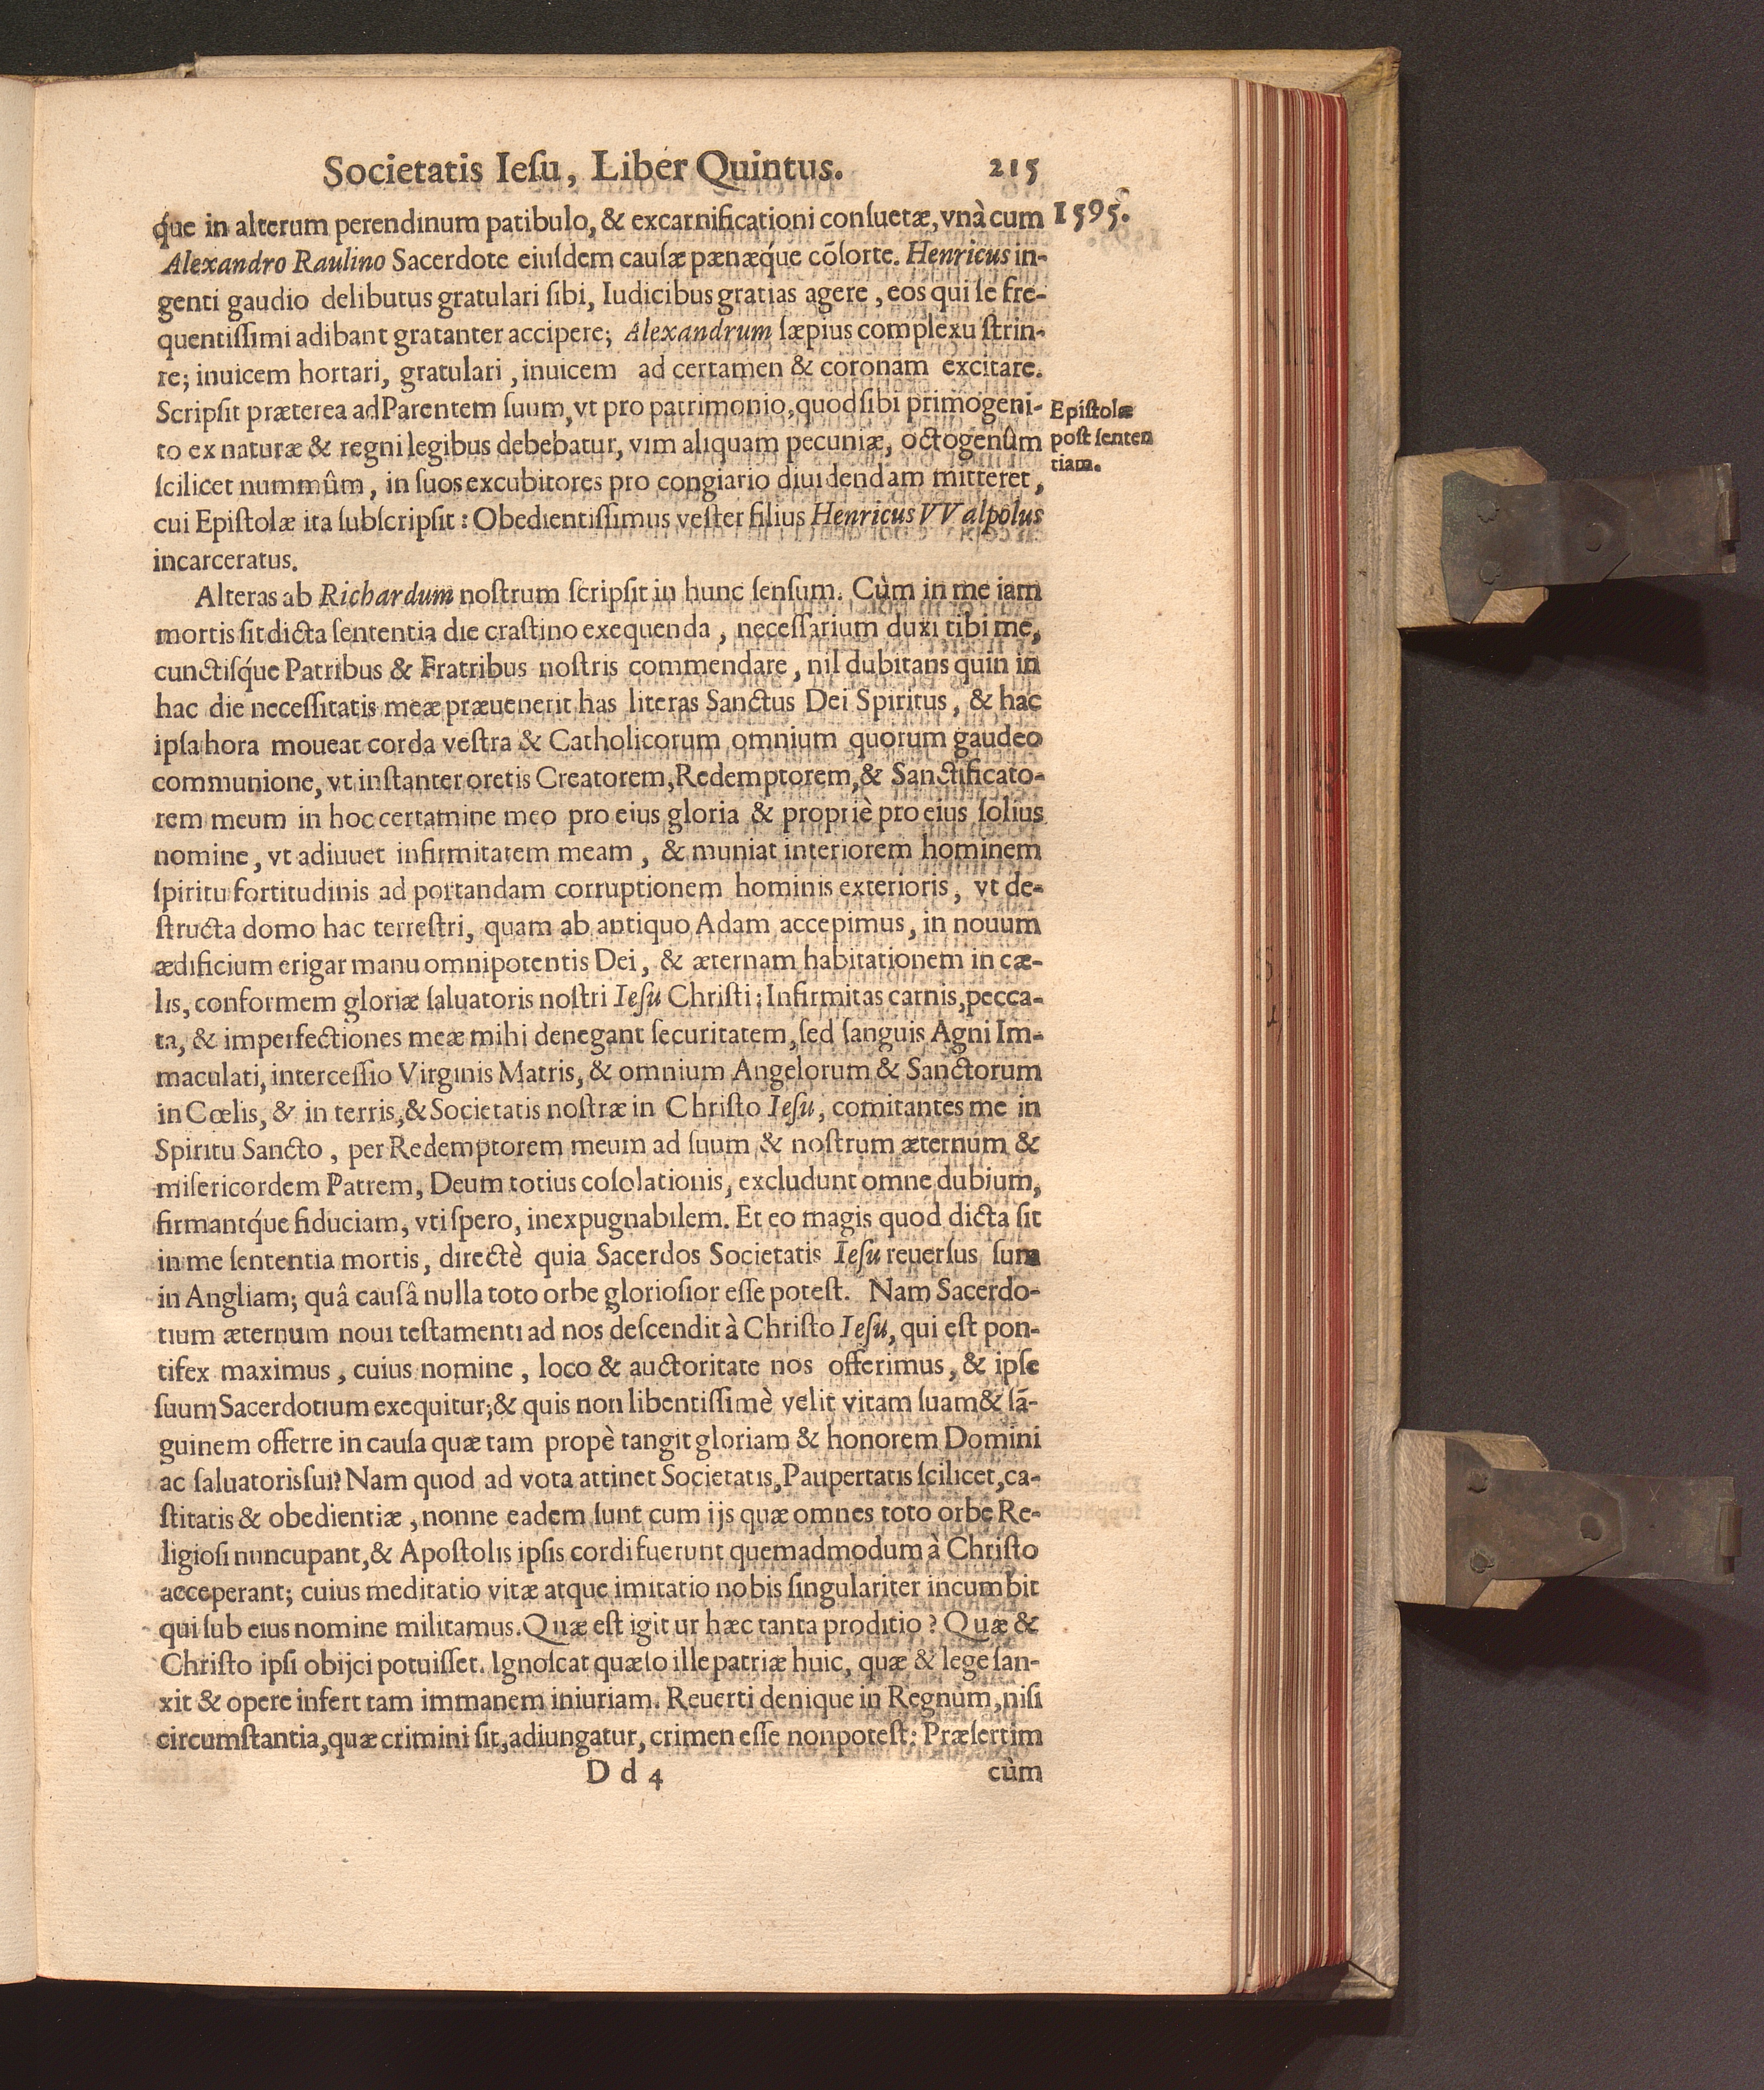 Societatis Ieſu, Liber Quintus. 215
q́ue in alterum perendinum patibulo, & excarnificationi conſuetæ, vnà cum 1595.
Alexandro Raulino Sacerdote eiuſdem cauſæ pænæq́ue cōſorte. Henricus in-
genti gaudio delibutus gratulari ſibi, Iudicibus gratias agere, eos qui ſe fre-
quentiſſimi adibant gratanter accipere; Alexandrum ſæpius complexu ſtrin-
re; inuicem hortari, gratulari, inuicem ad certamen & coronam excitare.
Scripſit præterea ad Parentem ſuum, vt pro patrimonio, quod ſibi primogeni-
to ex naturæ & regni legibus debebatur, vim aliquam pecuniæ, octogenûm
ſcilicet nummûm, in ſuos excubitores pro congiario diuidendam mitteret,
cui Epiſtolæ ita ſubſcripſit: Obedientiſſimus veſter filius Henricus VValpolus
incarceratus.
Epiſtolæ
poſt ſenten
tiam.
Alteras ab Richardum noſtrum ſcripſit in hunc ſenſum. Cùm in me iam
mortis ſit dicta ſententia die craſtino exequenda, neceſſarium duxi tibi me,
cunctiſq́ue Patribus & Fratribus noſtris commendare, nil dubitans quin in
hac die neceſſitatis meæ præuenerit has literas Sanctus Dei Spiritus, & hac
ipſa hora moueat corda veſtra & Catholicorum omnium quorum gaudeo
communione, vt inſtanter oretis Creatorem, Redemptorem, & Sanctificato-
rem meum in hoc certamine meo pro eius gloria & propriè pro eius ſolius
nomine, vt adiuuet infirmitatem meam, & muniat interiorem hominem
ſpiritu fortitudinis ad portandam corruptionem hominis exterioris, vt de-
ſtructa domo hac terreſtri, quam ab antiquo Adam accepimus, in nouum
ædificium erigar manu omnipotentis Dei, & æternam habitationem in cæ-
lis, conformem gloriæ ſaluatoris noſtri Ieſu Chriſti; Infirmitas carnis, pecca-
ta, & imperfectiones meæ mihi denegant ſecuritatem, ſed ſanguis Agni Im-
maculati, interceſſio Virginis Matris, & omnium Angelorum & Sanctorum
in Cœlis, & in terris, & Societatis noſtræ in Chriſto Ieſu, comitantes me in
Spiritu Sancto, per Redemptorem meum ad ſuum & noſtrum æternum &
miſericordem Patrem, Deum totius coſolationis, excludunt omne dubium,
firmantq́ue fiduciam, vti ſpero, inexpugnabilem. Et eo magis quod dicta ſit
in me ſententia mortis, directè quia Sacerdos Societatis Ieſu reuerſus ſum
in Angliam; quâ cauſâ nulla toto orbe glorioſior eſſe poteſt. Nam Sacerdo-
tium æternum noui teſtamenti ad nos deſcendit à Chriſto Ieſu, qui eſt pon-
tifex maximus, cuius nomine, loco & auctoritate nos offerimus, & ipſe
ſuum Sacerdotium exequitur; & quis non libentiſſimè velit vitam ſuam & ſā-
guinem offerre in cauſa quæ tam propè tangit gloriam & honorem Domini
ac ſaluatoris ſui? Nam quod ad vota attinet Societatis, Paupertatis ſcilicet, ca-
ſtitatis & obedientiæ, nonne eadem ſunt cum ijs quæ omnes toto orbe Re-
ligioſi nuncupant, & Apoſtolis ipſis cordi fuerunt quemadmodum à Chriſto
acceperant; cuius meditatio vitæ atque imitatio nobis ſingulariter incumbit
qui ſub eius nomine militamus. Quæ eſt igitur hæc tanta proditio? Quæ &
Chriſto ipſi obijci potuiſſet. Ignoſcat quæſo ille patriæ huic, quæ & lege ſan-
xit & opere infert tam immanem iniuriam. Reuerti denique in Regnum, niſi
circumſtantia, quæ crimini ſit, adiungatur, crimen eſſe non poteſt: Præſertim
D d 4 cùm